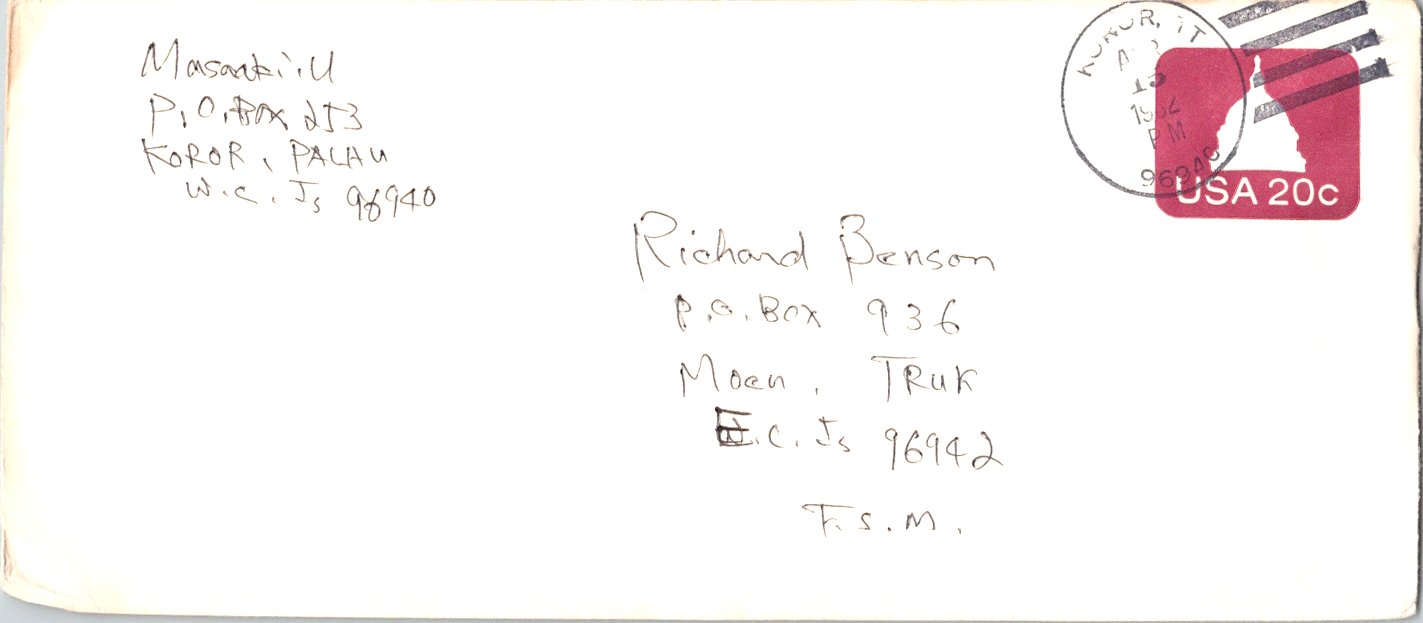 Masaaki.U
P.O.Box 253
KOROR, PALAU
W.C. Is 96940
KOROR, TT
APR
15
1982
PM
96940
USA 20c
Richard Benson
P.O. Box 936
Moen, TRUK
E.C. Is 96942
F.S.M.